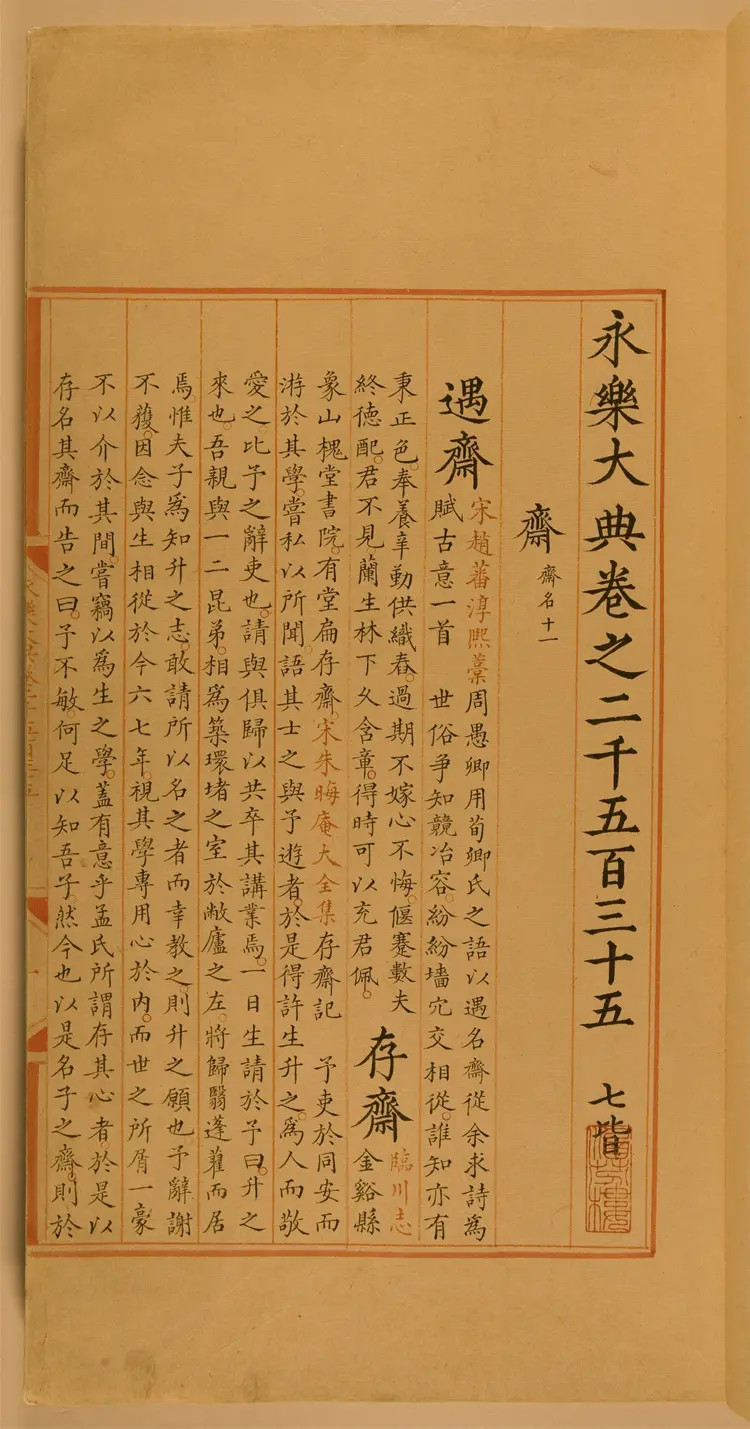 永樂大典卷之二千五百三十五 七皆
齋 齋名十一
遇齋
宋趙蕃淳熙藁周愚卿用荀卿氏之語以遇名齋從余求詩爲
賦古意一首 世俗爭知競冶容。紛紛墻穴交相從。誰知亦有
秉正色。奉養辛勤供織舂。過期不嫁心不悔。偃蹇數夫
終德配。君不見蘭生林下久含章。得時可以充君佩。
存齋
臨川志
金谿縣
象山槐堂書院。有堂扁存齋。宋朱晦庵大全集存齋記 予吏於同安而
游於其學。嘗私以所聞。語其士之與予遊者。於是得許生升之。爲人而敬
愛之。比予之辭吏也。請與俱歸以共卒其講業焉。一日生請於予曰。升之
來也。吾親與一二昆弟。相爲築環堵之室於敝廬之左。將歸翳蓬藋而居
焉惟夫子爲知升之志。敢請所以名之者而幸教之。則升之願也予辭謝
不獲。因念與生相從於今六七年。視其學專用心於內。而世之所屑一豪
不以介於其間。嘗竊以爲生之學。蓋有意乎孟氏所謂存其心者。於是以
存名其齋而告之曰。予不敏。何足以知吾子。然今也以是名子之齋。則於